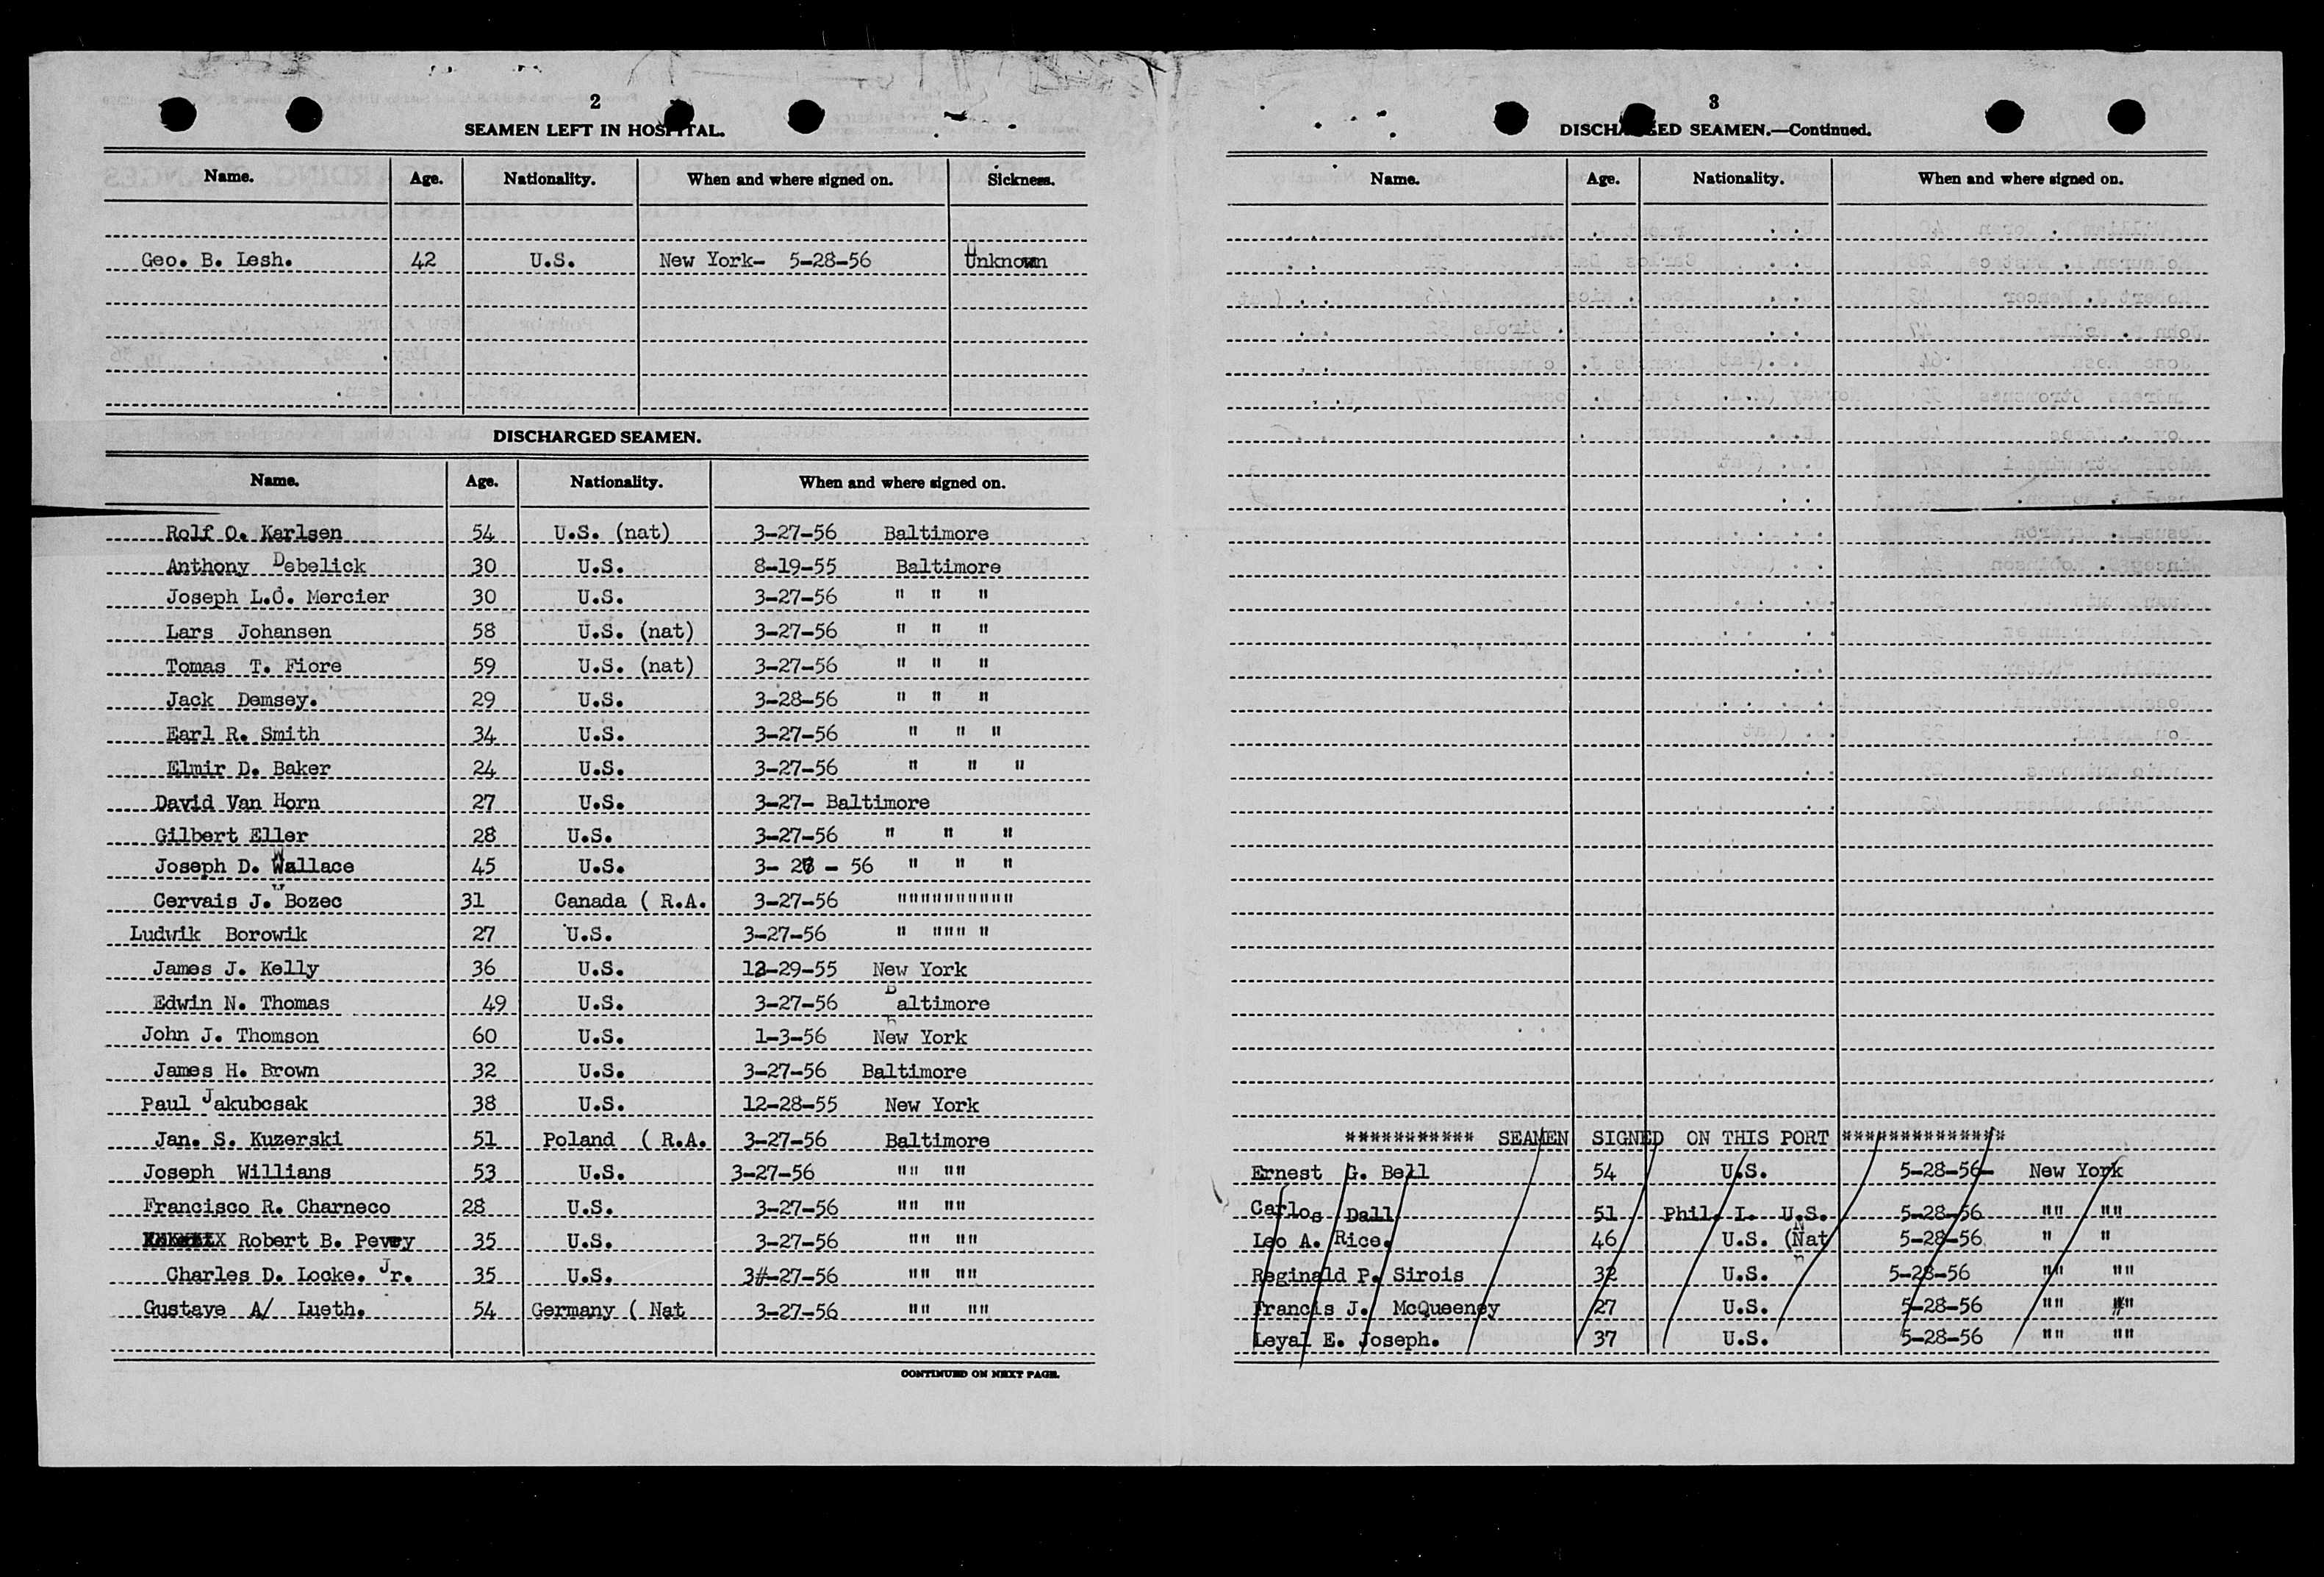 2
SEAMEN LEFT IN HOSPITAL.
Name. Age. Nationality. When and where signed on. Sickness.
Geo. B. Lesh. 42 U.S. New York- 5-28-56 Unknown
DISCHARGED SEAMEN.
Name. Age. Nationality. When and where signed on.
Rolf O. Karlsen 54 U.S. (nat) 3-27-56 Baltimore
Anthony Debelick 30 U.S. 8-19-55 Baltimore
Joseph L.O. Mercier 30 U.S. 3-27-56 " " "
Lars Johansen 58 U.S. (nat) 3-27-56 " " "
Tomas T. Fiore 59 U.S. (nat) 3-27-56 " " "
Jack Demsey. 29 U.S. 3-28-56 " " "
Earl R. Smith 34 U.S. 3-27-56 " " "
Elmir D. Baker 24 U.S. 3-27-56 " " "
David Van Horn 27 U.S. 3-27- Baltimore
Gilbert Eller 28 U.S. 3-27-56 " " "
Joseph D. Wallace 45 U.S. 3- - 56 " " "
Cervais J. Bozec 31 Canada ( R.A. 3-27-56 """"""""""
Ludwik Borowik 27 U.S. 3-27-56 " """ "
James J. Kelly 36 U.S. 12-29-55 New York
Edwin N. Thomas 49 U.S. 3-27-56 Baltimore
John J. Thomson 60 U.S. 1-3-56 New York
James H. Brown 32 U.S. 3-27-56 Baltimore
Paul Jakubcsak 38 U.S. 12-28-55 New York
Jan. S. Kuzerski 51 Poland ( R.A. 3-27-56 Baltimore
Joseph Willians 53 U.S. 3-27-56 "" ""
Francisco R. Charneco 28 U.S. 3-27-56 "" ""
Robert B. Pevey 35 U.S. 3-27-56 "" ""
Charles D. Locke. Jr. 35 U.S. 3#-27-56 "" ""
Gustave A/ Lueth. 54 Germany ( Nat 3-27-56 "" ""
CONTINUED ON NEXT PAGE.
3
DISCHARGED SEAMEN.—Continued.
Name. Age. Nationality. When and where signed on.
*********** SEAMEN SIGNED ON THIS PORT **************
Ernest G. Bell 54 U.S. 5-28-56- New York
Carlos Dall 51 Phil. I. U.S. 5-28-56 "" ""
Leo A. Rice. 46 U.S. (Nat 5-28-56 " "
Reginald P. Sirois 32 U.S. 5-28-56 "" ""
Francis J. McQueeney 27 U.S. 5-28-56 "" ""
Leyal E. Joseph. 37 U.S. 5-28-56 "" ""